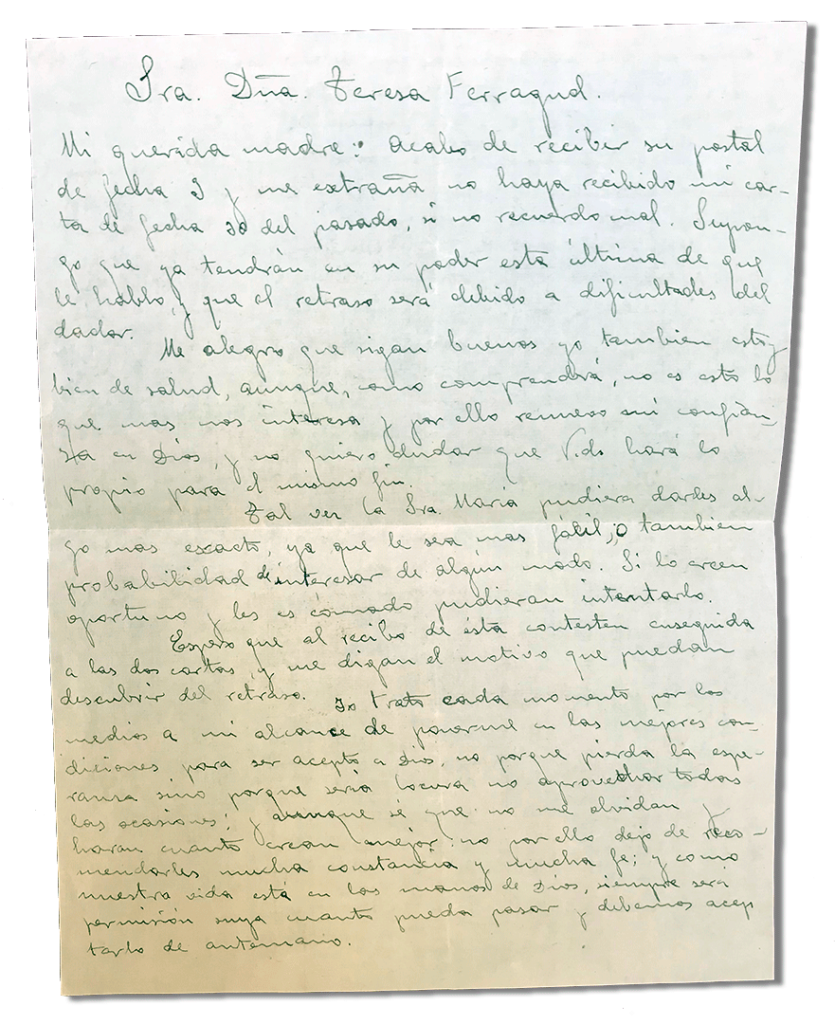 Sra. Dña. Teresa Ferragud.
Mi querida madre: Acabo de recibir su postal
de fecha 3 y me extraña no haya recibido mi car-
ta de fecha 30 del pasado, si no recuerdo mal. Supon-
go que ya tendrán en su poder esta última de que
le hablo, y que el retraso será debido a dificultades del
dador.
Me alegro que sigan buenos yo tambien estoy
bien de salud, aunque, como comprenderá, no es esto lo
que mas nos interesa y por ello renuevo mi confian-
za en Dios, y no quiero dudar que Vds hará lo
propio para el mismo fin.
Tal vez la Sra. Maria pudiera darles al-
go mas exacto, ya que le sea mas fácil, o tambien
probabilidad de interesar de algún modo. Si lo creen
oportuno y les es cómodo pudieran intentarlo.
Espero que al recibo de ésta contesten enseguida
a las dos cartas, y me digan el motivo que puedan
descubrir del retraso. Yo trato cada momento por los
medios a mi alcance de ponerme en las mejores con-
diciones para ser acepto a Dios, no porque pierda la espe-
ranza sino porque seria locura no aprovechar todas
las ocasiones; y aunque sé que no me olvidan y
haran cuanto crean mejor no por ello dejo de reco-
mendarles mucha constancia y mucha fe; y como
nuestra vida está en las manos de Dios, siempre será
permisión suya cuanto pueda pasar y debemos acep
tarlo de antemano.